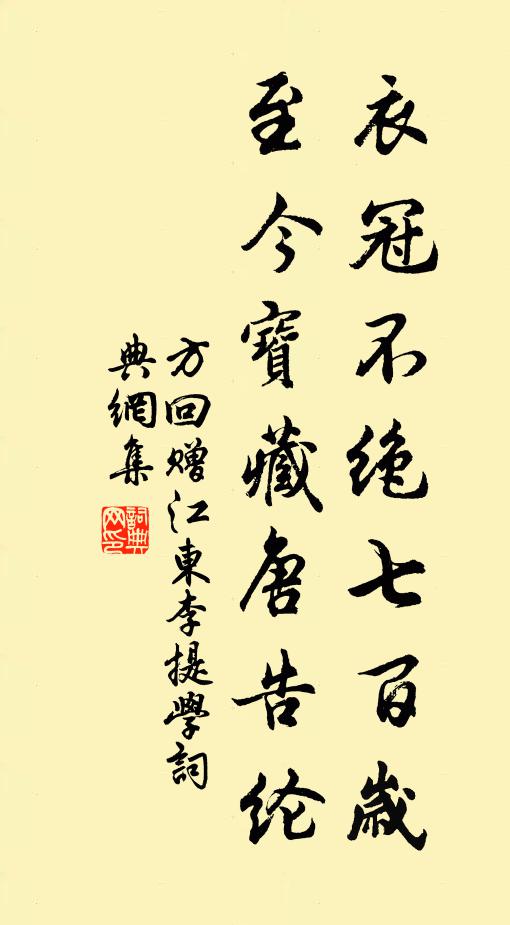 衣冠不绝七百歳
至今寶藏唐告纶
方回赠江東李提學詞
典網集
詞典
网印